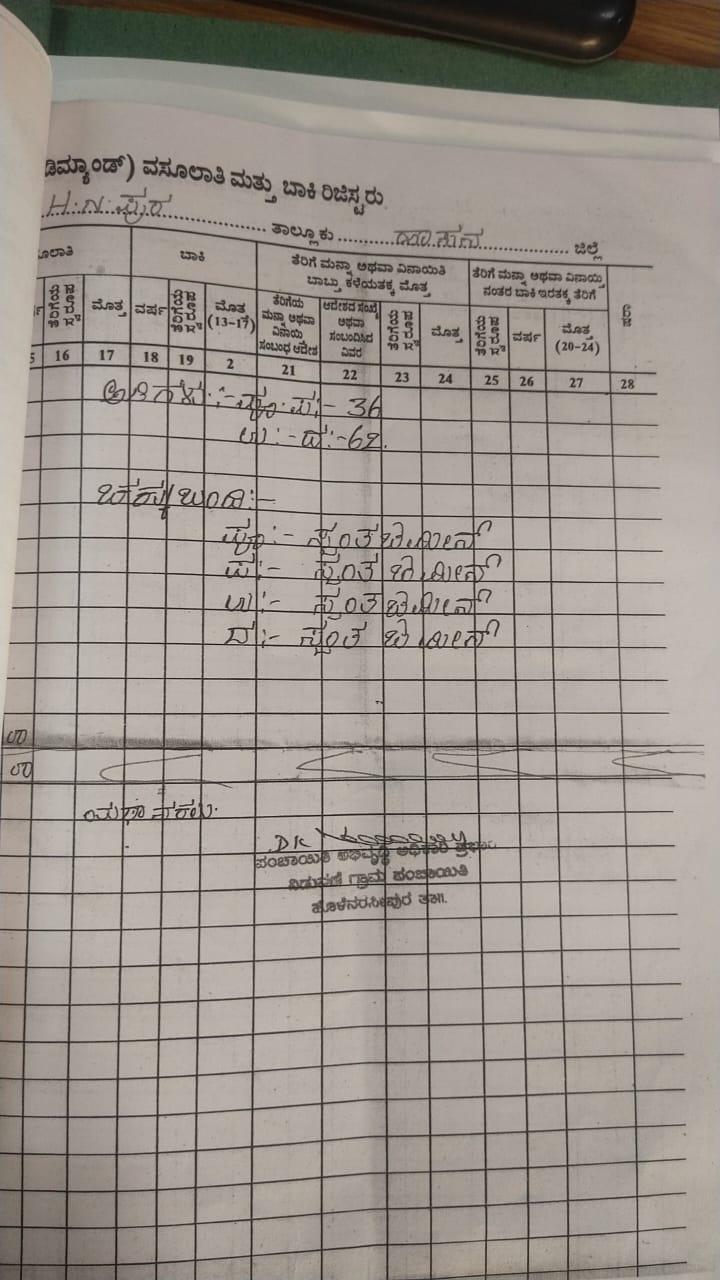 ಡಿಮ್ಯಾಂಡ್) ವಸೂಲಾತಿ ಮತ್ತು ಬಾಕಿ ರಿಜಿಸ್ಟರು
H.N.ಪುರ ತಾಲ್ಲೂಕು ಹಾಸನ ಜಿಲ್ಲೆ
ೂಲಾತಿ ಬಾಕಿ ತೆರಿಗೆ ಮನ್ನಾ ಅಥವಾ ವಿನಾಯಿತಿ ಬಾಬ್ತು ಕಳೆಯತಕ್ಕ ಮೊತ್ತ ತೆರಿಗೆ ಮನ್ನಾ ಅಥವಾ ವಿನಾಯ್ತಿ ನಂತರ ಬಾಕಿ ಇರತಕ್ಕ ತೆರಿಗೆ
ಮೊತ್ತ ವರ್ಷ ಮೊತ್ತ (13-17) ತೆರಿಗೆಯ ಮನ್ನಾ ಅಥವಾ ವಿನಾಯ್ತಿ ಸಂಬಂಧ ಆದೇಶ ಆದೇಶದ ಸಂಖ್ಯೆ ಅಥವಾ ಸಂಬಂದಿಸಿದ ವಿವರ ಮೊತ್ತ ವರ್ಷ ಮೊತ್ತ (20-24)
5 16 17 18 19 2 21 22 23 24 25 26 27 28
ಅಳತೆಗಳು :- ಪೂ.ಪ:- 36
ಉ:-ದ:-62.
ಚಕ್ಕುಬಂದಿ:-
ಪೂ:- ಸ್ವಂತ ಜಮೀನ್
ಪ:- ಸ್ವಂತ ಜಮೀನ್
ಉ:- ಸ್ವಂತ ಜಮೀನ್
ದ:- ಸ್ವಂತ ಜಮೀನ್
00
00
ಯಥಾ ನಕಲು.
ಪಂಚಾಯಿತಿ ಅಭಿವೃದ್ಧಿ ಅಧಿಕಾರಿ
ಗ್ರಾಮ ಪಂಚಾಯಿತಿ
ಹೊಳೆನರಸೀಪುರ ತಾ॥.